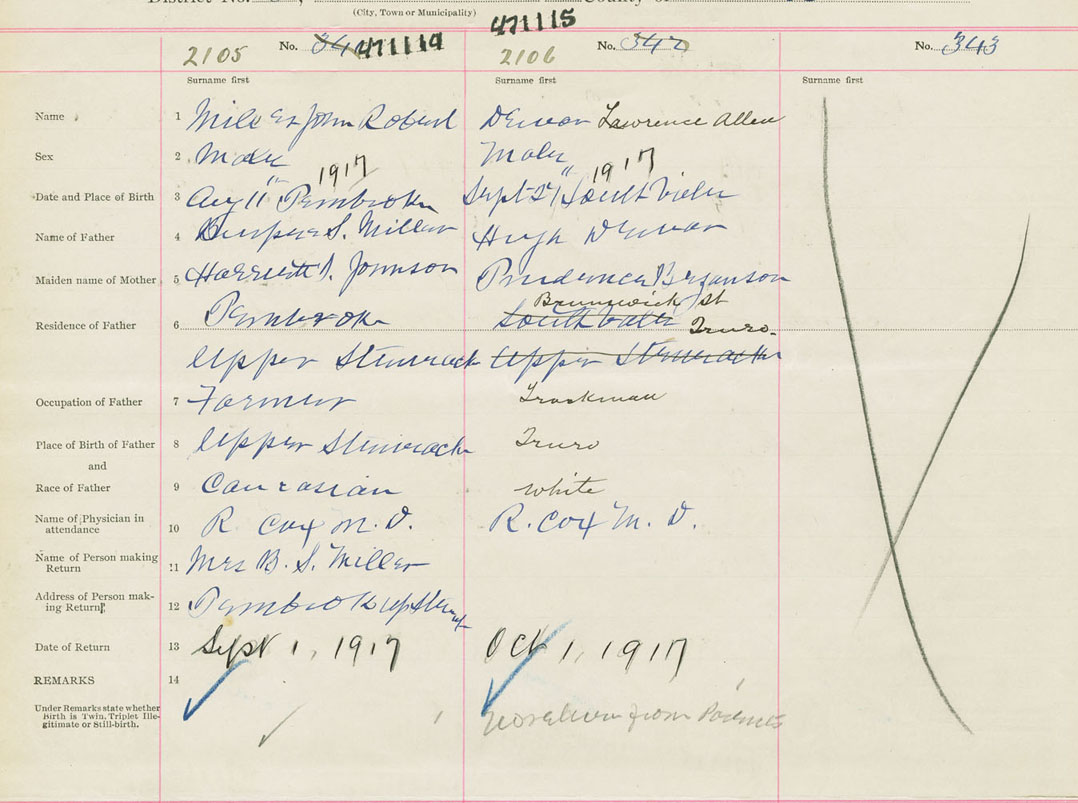 District No. County of
(City, Town or Municipality)
471115
2105 No. 34 471114 2106 No. 342 No. 343
Surname first Surname first Surname first
Name 1 Miller John Robert Dewar Lawrence Allen
Sex 2 Male Male
1917 1917
Date and Place of Birth 3 Aug 11" Pembroke Sept 27" South Vale
Name of Father 4 Burpee S. Miller Hugh Dewar
Maiden name of Mother 5 Harriett Johnson Prudence Bezanson
Brunswick St
Residence of Father 6 Pembroke South Vale Truro.
Upper Stewiacke Upper Stewiacke
Occupation of Father 7 Farmer Truckman
Place of Birth of Father 8 Upper Stewiacke Truro
and
Race of Father 9 Caucasian white
Name of Physician in
attendance 10 R. Cox M. D. R. Cox M. D.
Name of Person making
Return 11 Mrs B. S. Miller
Address of Person mak-
ing Return 12 Pembroke Up
Date of Return 13 Sept 1, 1917 Oct 1, 1917
REMARKS 14
Under Remarks state whether
Birth is Twin, Triplet Ille-
gitimate or Still-birth.
from Parents